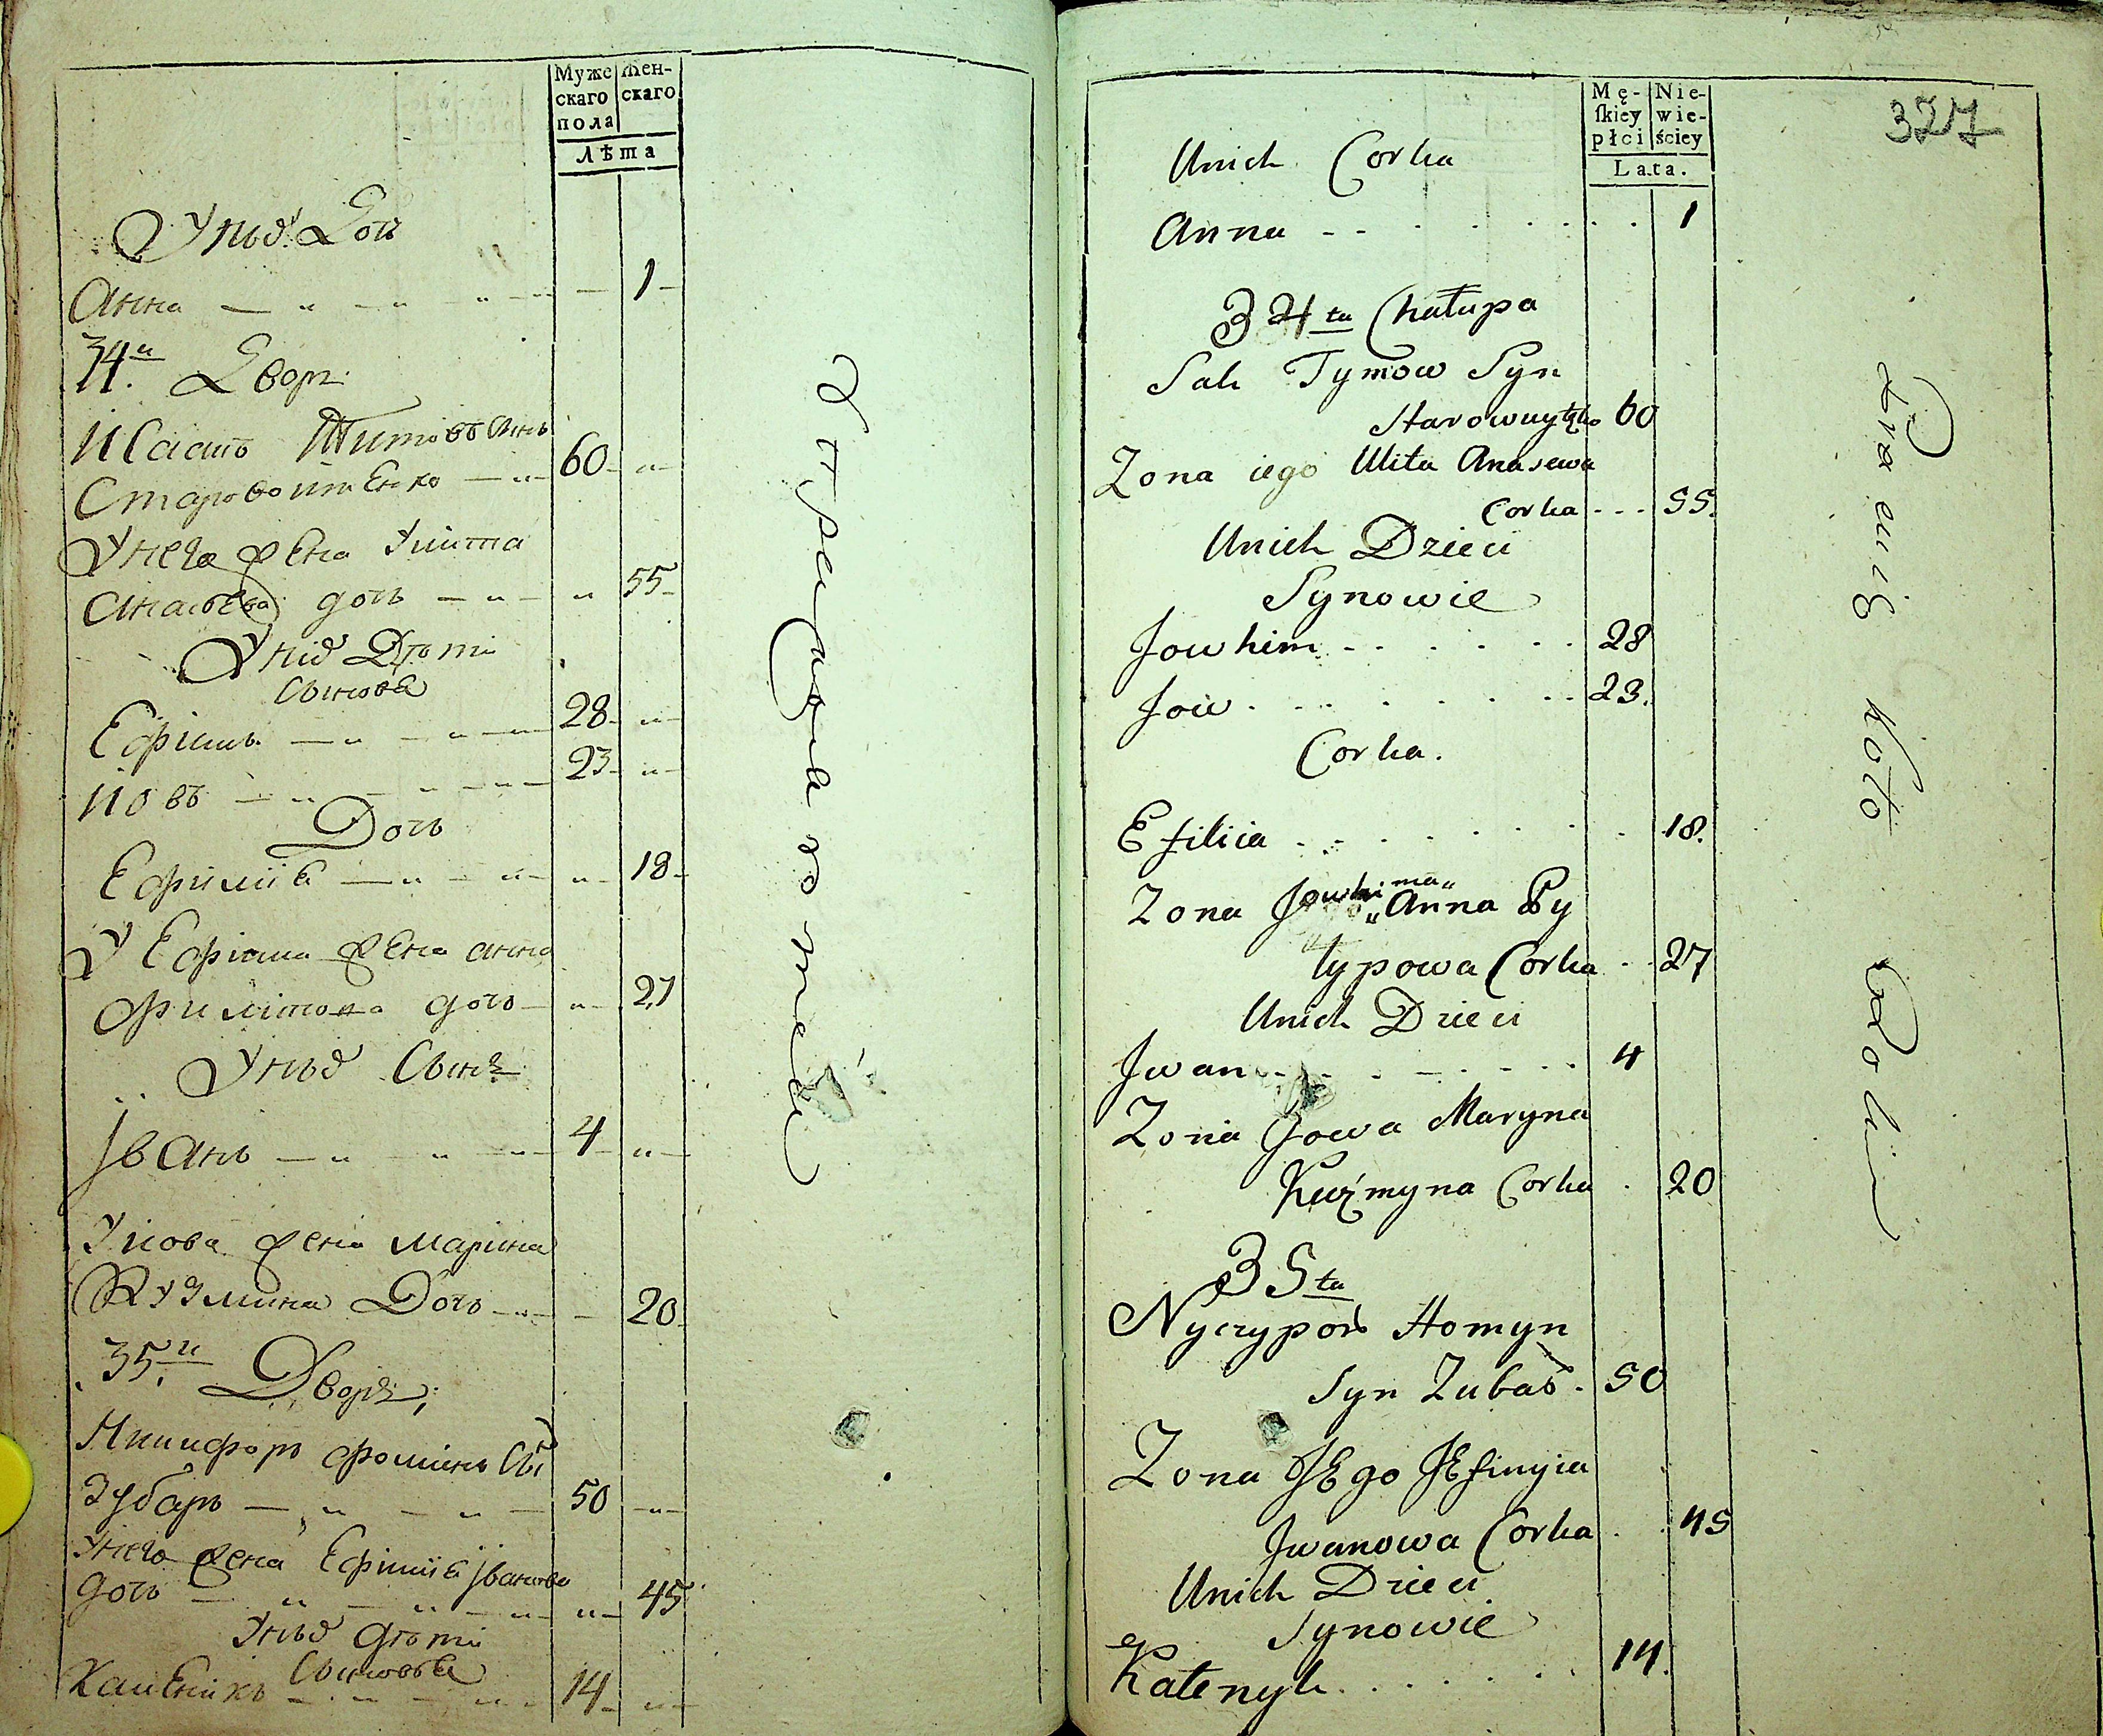 Муже
скаго
пола
Жен-
скаго
лѣта
У них Доч
Анна 1
34й Двор
Исакъ Титовъ Сынъ
Старовойтенко 60
У него жена Улита
Ананьева доч 55
У них Дѣти
Сыновья
Ефимъ 28
Иовъ 23
Доч
Ефимия 18
У Ефима жена Анна
Филипова доч 27
У них Сынъ
Іванъ 4
У Иова жена Марина
Кузмина Доч 20
35й Дворъ
Никифоръ Фоминъ Сын
Зубарь 50
У него жена Ефимия Іванова
доч 45
У них дѣти
Сыновья
Каленикъ 14
Mę-
ſkiey
płci
Nie-
wie-
ściey
Lata.
327
Unich Corka
Anna 1
34ta Chałupa
Sak Tymow Syn
60
Zona iego Ulita
Corka 55.
Unich Dzieci
Synowie
Jowhim 28
Jow 23.
Corka.
Efiliia 18.
Zona Jowhima Anna Py
typowa Corka 27
Unich Dzieci
Jwan 4
Zona Jowa Maryna
Kuźmyna Corka 20
35ta
Nyczypor Homyn
Syn Zubar 50
Zona JEgo JEfimyia
Jwanowa Corka 45
Unich Dzieci
Synowie
Kałenyk 14.